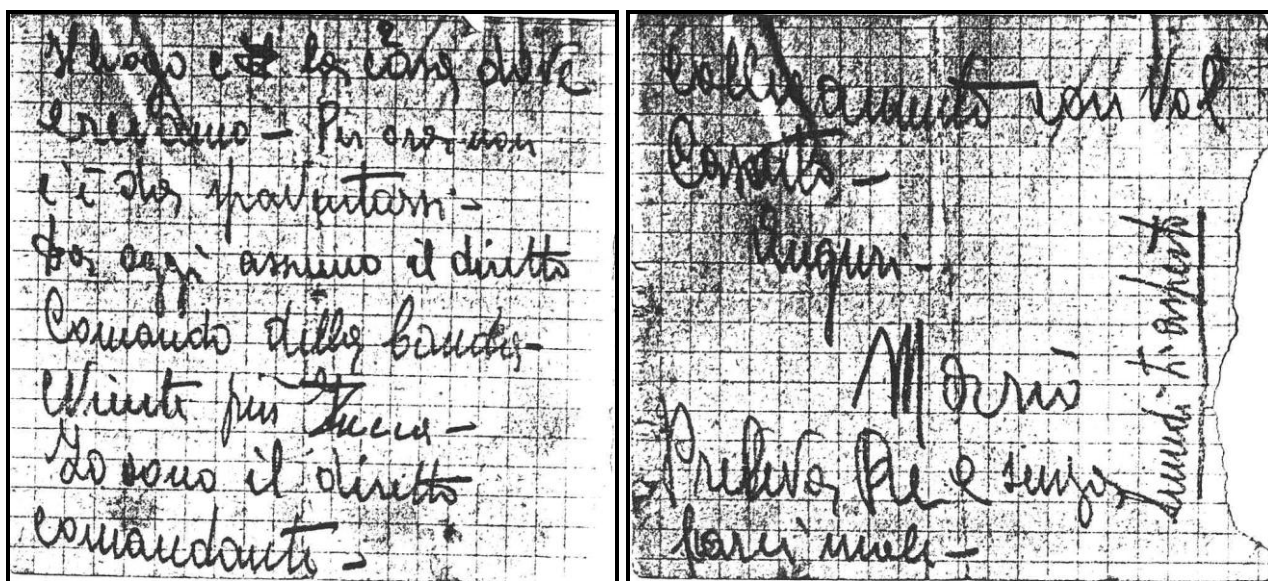 Il luogo è la casa dove
eravamo - Per ora non
c'è da spaventarsi -
Da oggi assumo il diretto
Comando della banda -
Niente più
Io sono il diretto
comandante -
Collegamento con Val
Casotto -
Auguri -
Mario
Preleva Rè e senza
farci male -